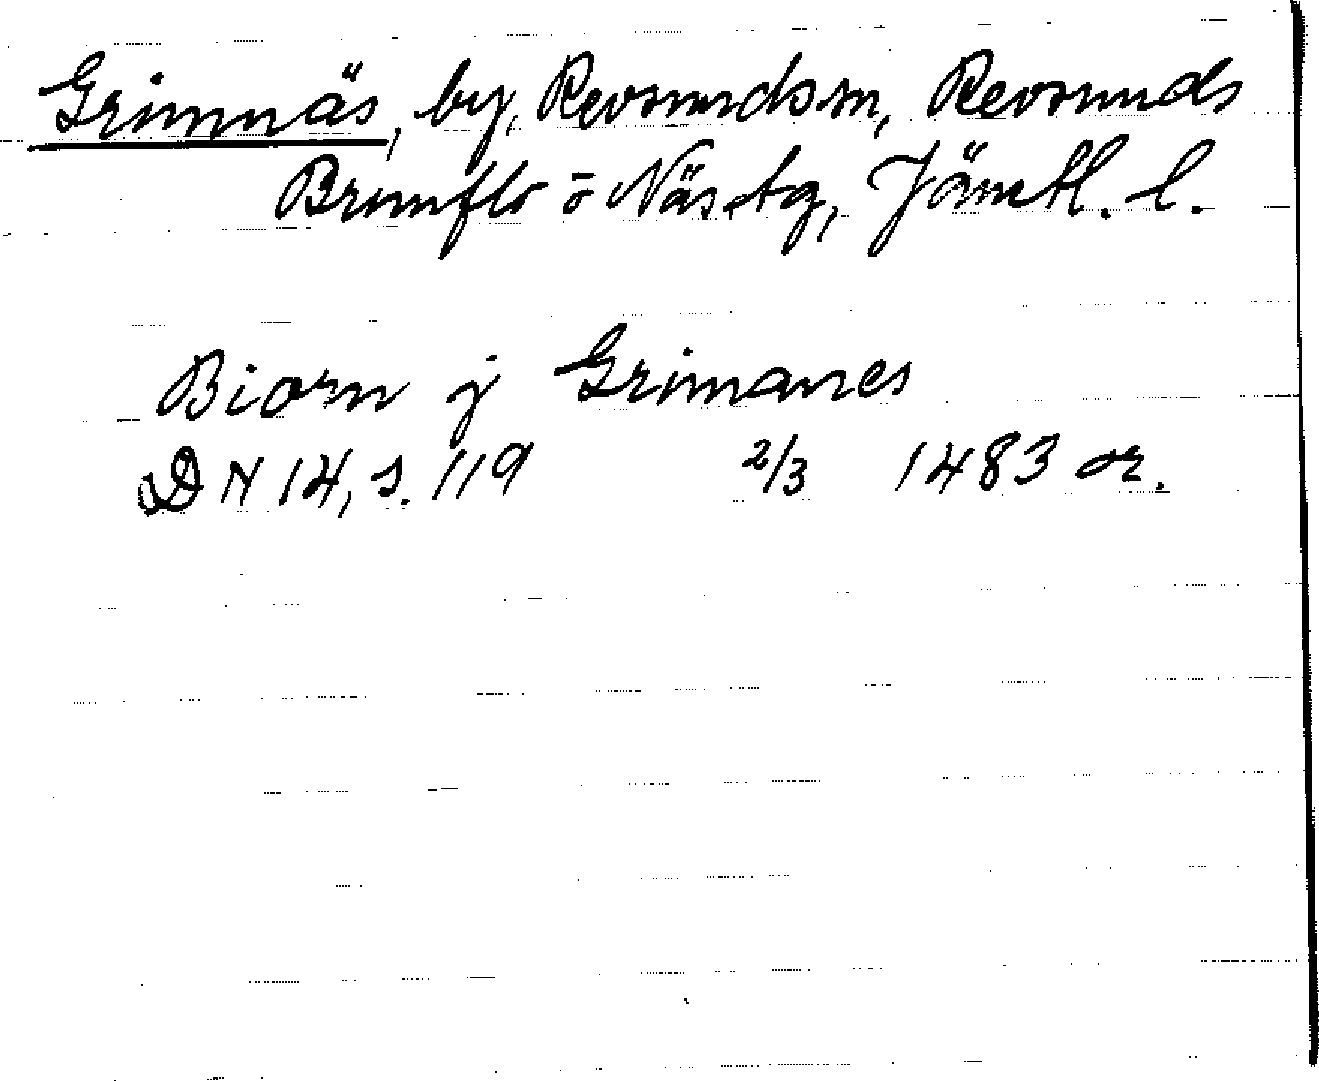 Grimnäs, by, Revsunds sn, Revsunds
Brunflo o Näs tg, Jämtl. l.
Biorn j Grimanes
DN 14, s. 119 2/3 1483 or.